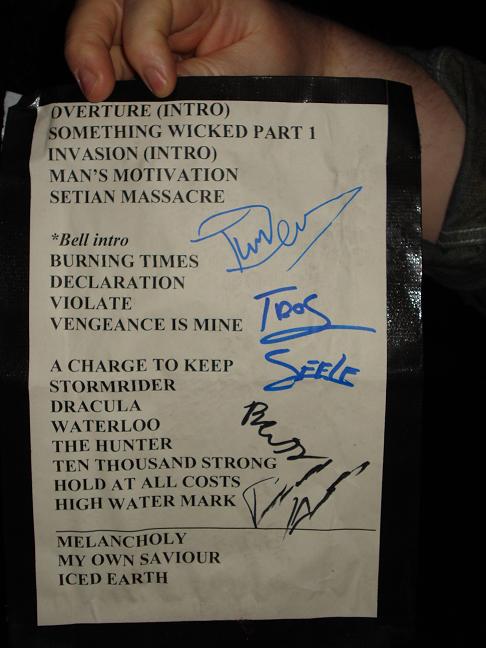 OVERTURE (INTRO)
SOMETHING WICKED PART 1
INVASION (INTRO)
MAN'S MOTIVATION
SETIAN MASSACRE
*Bell intro
BURNING TIMES
DECLARATION
VIOLATE
VENGEANCE IS MINE
TROS
SEELE
A CHARGE TO KEEP
STORMRIDER
DRACULA
WATERLOO
THE HUNTER
TEN THOUSAND STRONG
HOLD AT ALL COSTS
HIGH WATER MARK
MELANCHOLY
MY OWN SAVIOUR
ICED EARTH